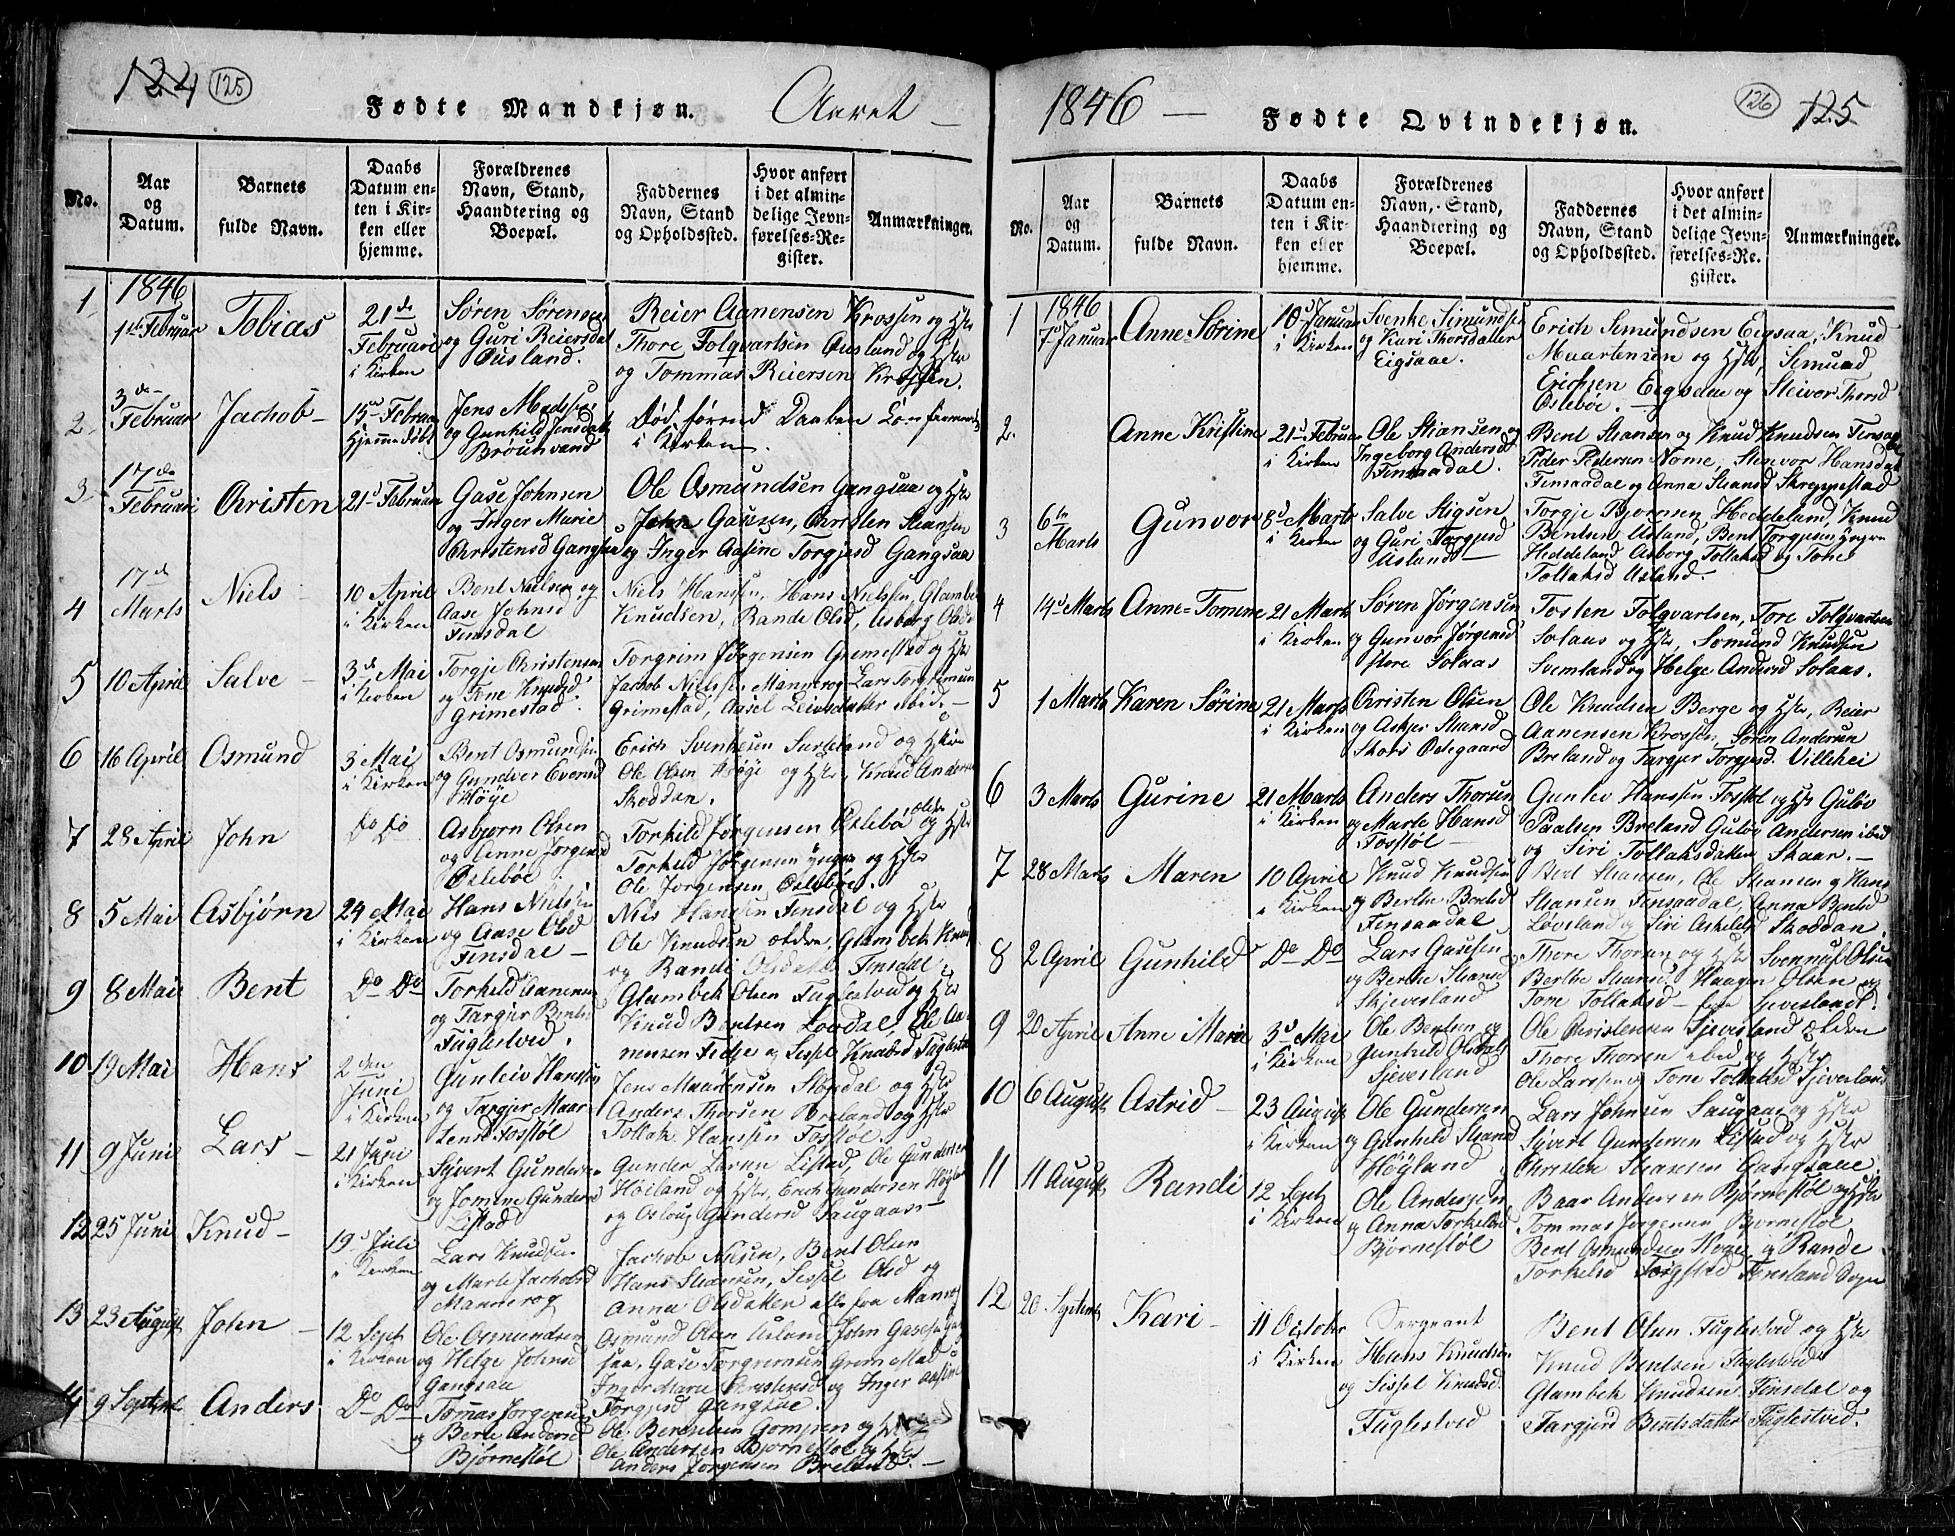 124 125
Fødte Mandkjøn. Aaret –
No.
Aar og Datum.
Barnets fulde Navn.
Daabs Datum enten i Kirken eller hjemme.
Forældrenes Navn, Stand, Haandtering og Boepæl.
Faddernes Navn, Stand og Opholdssted.
Hvor anført i det almindelige Jevnførelses-Register.
Anmærkninger.
1846
1 1ste Februar Tobias 21de Februari i Kirken
Søren Sørensen
og Guri Reiersd
Ousland.
Reier Aanensen Krossen og Hstr
Thore Folqvartsen Ousland og Hstr
og Tommas Reiersen Krossen.
2 3de Februar Jachob 15de Februar Hjemmedøbt
Jens
og Gunhild Jensdatt
Død førend Daaben
i Kirken.
3 17de Februari Christen 21de Februar
Gase Johnsen
og Inger Marie
Christensd Gangsaa
Ole Osmundsen Gangsaa og Hstr
John Gasesen, Christen Stiansen
og Inger Aasine Torgjesd Gangsaa
4 17de Marts Niels 10 April i Kirken
Bent Nielsen og
Aase Johnsd
Finsdal
Niels Hansen, Hans Nielssen, Glambek
Knudsen, Rande Olsd, Asborg Olsd
5 10 April Salve 3de Mai i Kirken
Torgje Christensen
og Tone Knudsd
Grimestad.
Torgrim Jørgensen Grimestad og Hstr
Jacob Nielssen Mannerog Lars
Grimestad, Aasel ibid.
6 16 April Osmund 3 Mai i Kirken
Bent Osmundsen
og Gundver Evensd
Høye
Erich Svenkesen og Hstr
Ole Olsen Høye og Hstr, Knud Anders
Skoddan.
7 28 April John Do Do
Asbjørn Olsen
og Anne Jørgensd
Oslebøe
Torkild Jørgensen Oslebø ældre og Hstr
Torkild Jørgensen yngre og Hstr
Ole Jørgensen Oslebøe.
8 5 Mai Asbjørn 24 Mai i Kirken
Hans Nielsen
og Aase Olsd
Finsdal
Nils Hansen Finsdal og Hstr
Ole Knudsen ældre, Glambek Knud
og Randi Olsdatter Finsdal.
9 8 Mai Bent Do Do
Torkild Aanensen
og Targjer Bentsd
Fuglestved.
Glambek Olsen Fuglestved og Hstr
Knud Bentsen Lovdal, Ole Aa-
nensen og Sissel Knudsd Fuglestved
10 19 Mai Hans 2den Juni i Kirken
Gunleiv Hanssen
og Targjer Maar-
tensd Fosstøl
Jens Maartensen Støpdal og Hstr
Anders Thorsen Breland og Hstr
Tollak Hanssen Fosstøl.
11 9 Juni Lars 21 Juni i Kirken
Syvert Gundersen
og Jomine Gundersd
Listad
Gunder Larsen Listad, Ole Gundersen
Høiland og Hstr, Erich Gundersen Høiland
og Gundersd Saugaas
12 25 Juni Knud 19de Juli i Kirken
Lars Knudsen
og Marte Jachobsd
Mannerog
Jachob Nilsen, Bent Olsen
Hans Stiansen, Sissel Olsd og
Anna Olsdatter alle paa Mannerog
13 23 August John 12 Sept i Kirken
Ole Osmundsen
og Helge Johnsd
Gangsaa
Osmund Olsen Ausland John Gasesen Gang-
saa, Gase Torgrimsen Grimestad
Inger Marie Christensd og Inger Aasine
Torgjesd Gangsaa.
14 9 Septbr Anders Do Do
Tomas Jørgensen
og Berte Andersd
Bjørnestøl
Ole Berentsen Gompen og Hstr
Ole Andersen Bjørnestøl og Hstr
Anders Jørgensen Breland.
1846 –
126 125
Fødte Qvindekjøn.
No.
Aar og Datum.
Barnets fulde Navn.
Daabs Datum enten i Kirken eller hjemme.
Forældrenes Navn, Stand, Haandtering og Boepæl.
Faddernes Navn, Stand og Opholdssted.
Hvor anført i det almindelige Jevnførelses-Register.
Anmærkninger.
1846
1 7de Januar Anne Sørine 10de Januar i Kirken
Svenke Simundsen
og Kari Thorsdatter
Eigsaae.
Erich Simundsen Eigsaa, Knud
Maartensen og Hstr, Simund
Erichsen Eigsaae og Steivor Thorsd
Oslebøe.
2. Anne Kristine 21de Februar i Kirken
Ole Stiansen og
Ingeborg Andersd
Finsaadal.
Bent Stiansen og Knud Knudsen Finsaadal
Peder Pedersen Nome, Stenvor Hansdat
Finsaadal og Anna Stiansd Skreppestad
3 6te Marts Gunvor 8de Marts i Kirken
Salve Stigsen
og Guri Torgjusd
Ausland
Torgje Bjørnsen Heddeland, Knud
Bentsen Ausland, Bent Torgjesen yngre
Heddeland Asborg Tollaksd og Tone
Tollaksd Ausland.
4 14de Marts Anne=Tomine 21 Marts i Kirken
Søren Jørgensen
og Gunvor Jørgensd
store Solaas
Tosten Folqvartsen, Tore Folqvartsen
Solaas og Hstr, Somund Knudsen
Svemland og Helge Andersd Solaas.
5 1 Marts Karen Sørine 21 Marts i Kirken
Christen Olsen
og Askjer Stiansd
Skors Ødegaard
Ole Knudsen Berge og Hstr, Reier
Aanensen Krossen, Søren Andersen
Breland og Targjer Torgjusd. Villehei
6 3 Marts Gurine 21 Marts i Kirken
Anders Thorsen
og Marte Hansd
Fosstøl
Gunlev Hanssen Fosstøl og Hstr Guløv
Paalsen Breland Guløv Andersen ibid
og Siri Tollaksdatter Skaar.
7 28 Marts Maren 10 April i Kirken
Knud Knudsen
og Berthe Bentsd
Finsaadal
Bent Stiansen, Ole Stiansen og Hans
Stiansen Finsaadal, Anna Bentsd
Løvsland og Siri Askildsd Skoddan.
8 2 April Gunhild Do Do
Lars Gasesen
og Berthe Stiansd
Skjevesland
Thore Thorsen og Hstr Svennuf Olsen
Berthe Stiansd, Haagen Olsen og
Tone Tollaksd Sjevesland.
9 20 April Anne Marie 3de Mai i Kirken
Ole Bentsen og
Gunhild Olsdatt
Sjevesland
Ole Christensen Sjevesland ældre
Thore Thorsen ibid og Hstr
Ole Larssen og Tone Tollaksd Sjevesland
10 6 August Astrid 23 August i Kirken
Ole Gundersen
og Gunhild Stiansd
Høyland
Lars Johnsen Saugaas og Hstr
Syvert Gundersen Listad og Hstr
Christen Stiansen Gangsaae.
11 11 August Randi 12 Sept i Kirken
Ole Andersen
og Anna Torkelsd
Bjørnestøl
Baar Andersen Bjørnestøl og Hstr
Tommas Jørgensen Bjørnestøl
Bent Osmundsen Høye, og Rande
Torkelsd Finsland Sogn
12 20 Septbr Kari 11 October i Kirken
Sergeant
Hans Knudsen
og Sissel Knudsd
Fuglestved
Bent Olsen Fuglestved og Hstr
Knud Bentsen Fuglestved
Glambek Knudsen Finsdal og
Targjerd Bentsdatter Fuglestved.